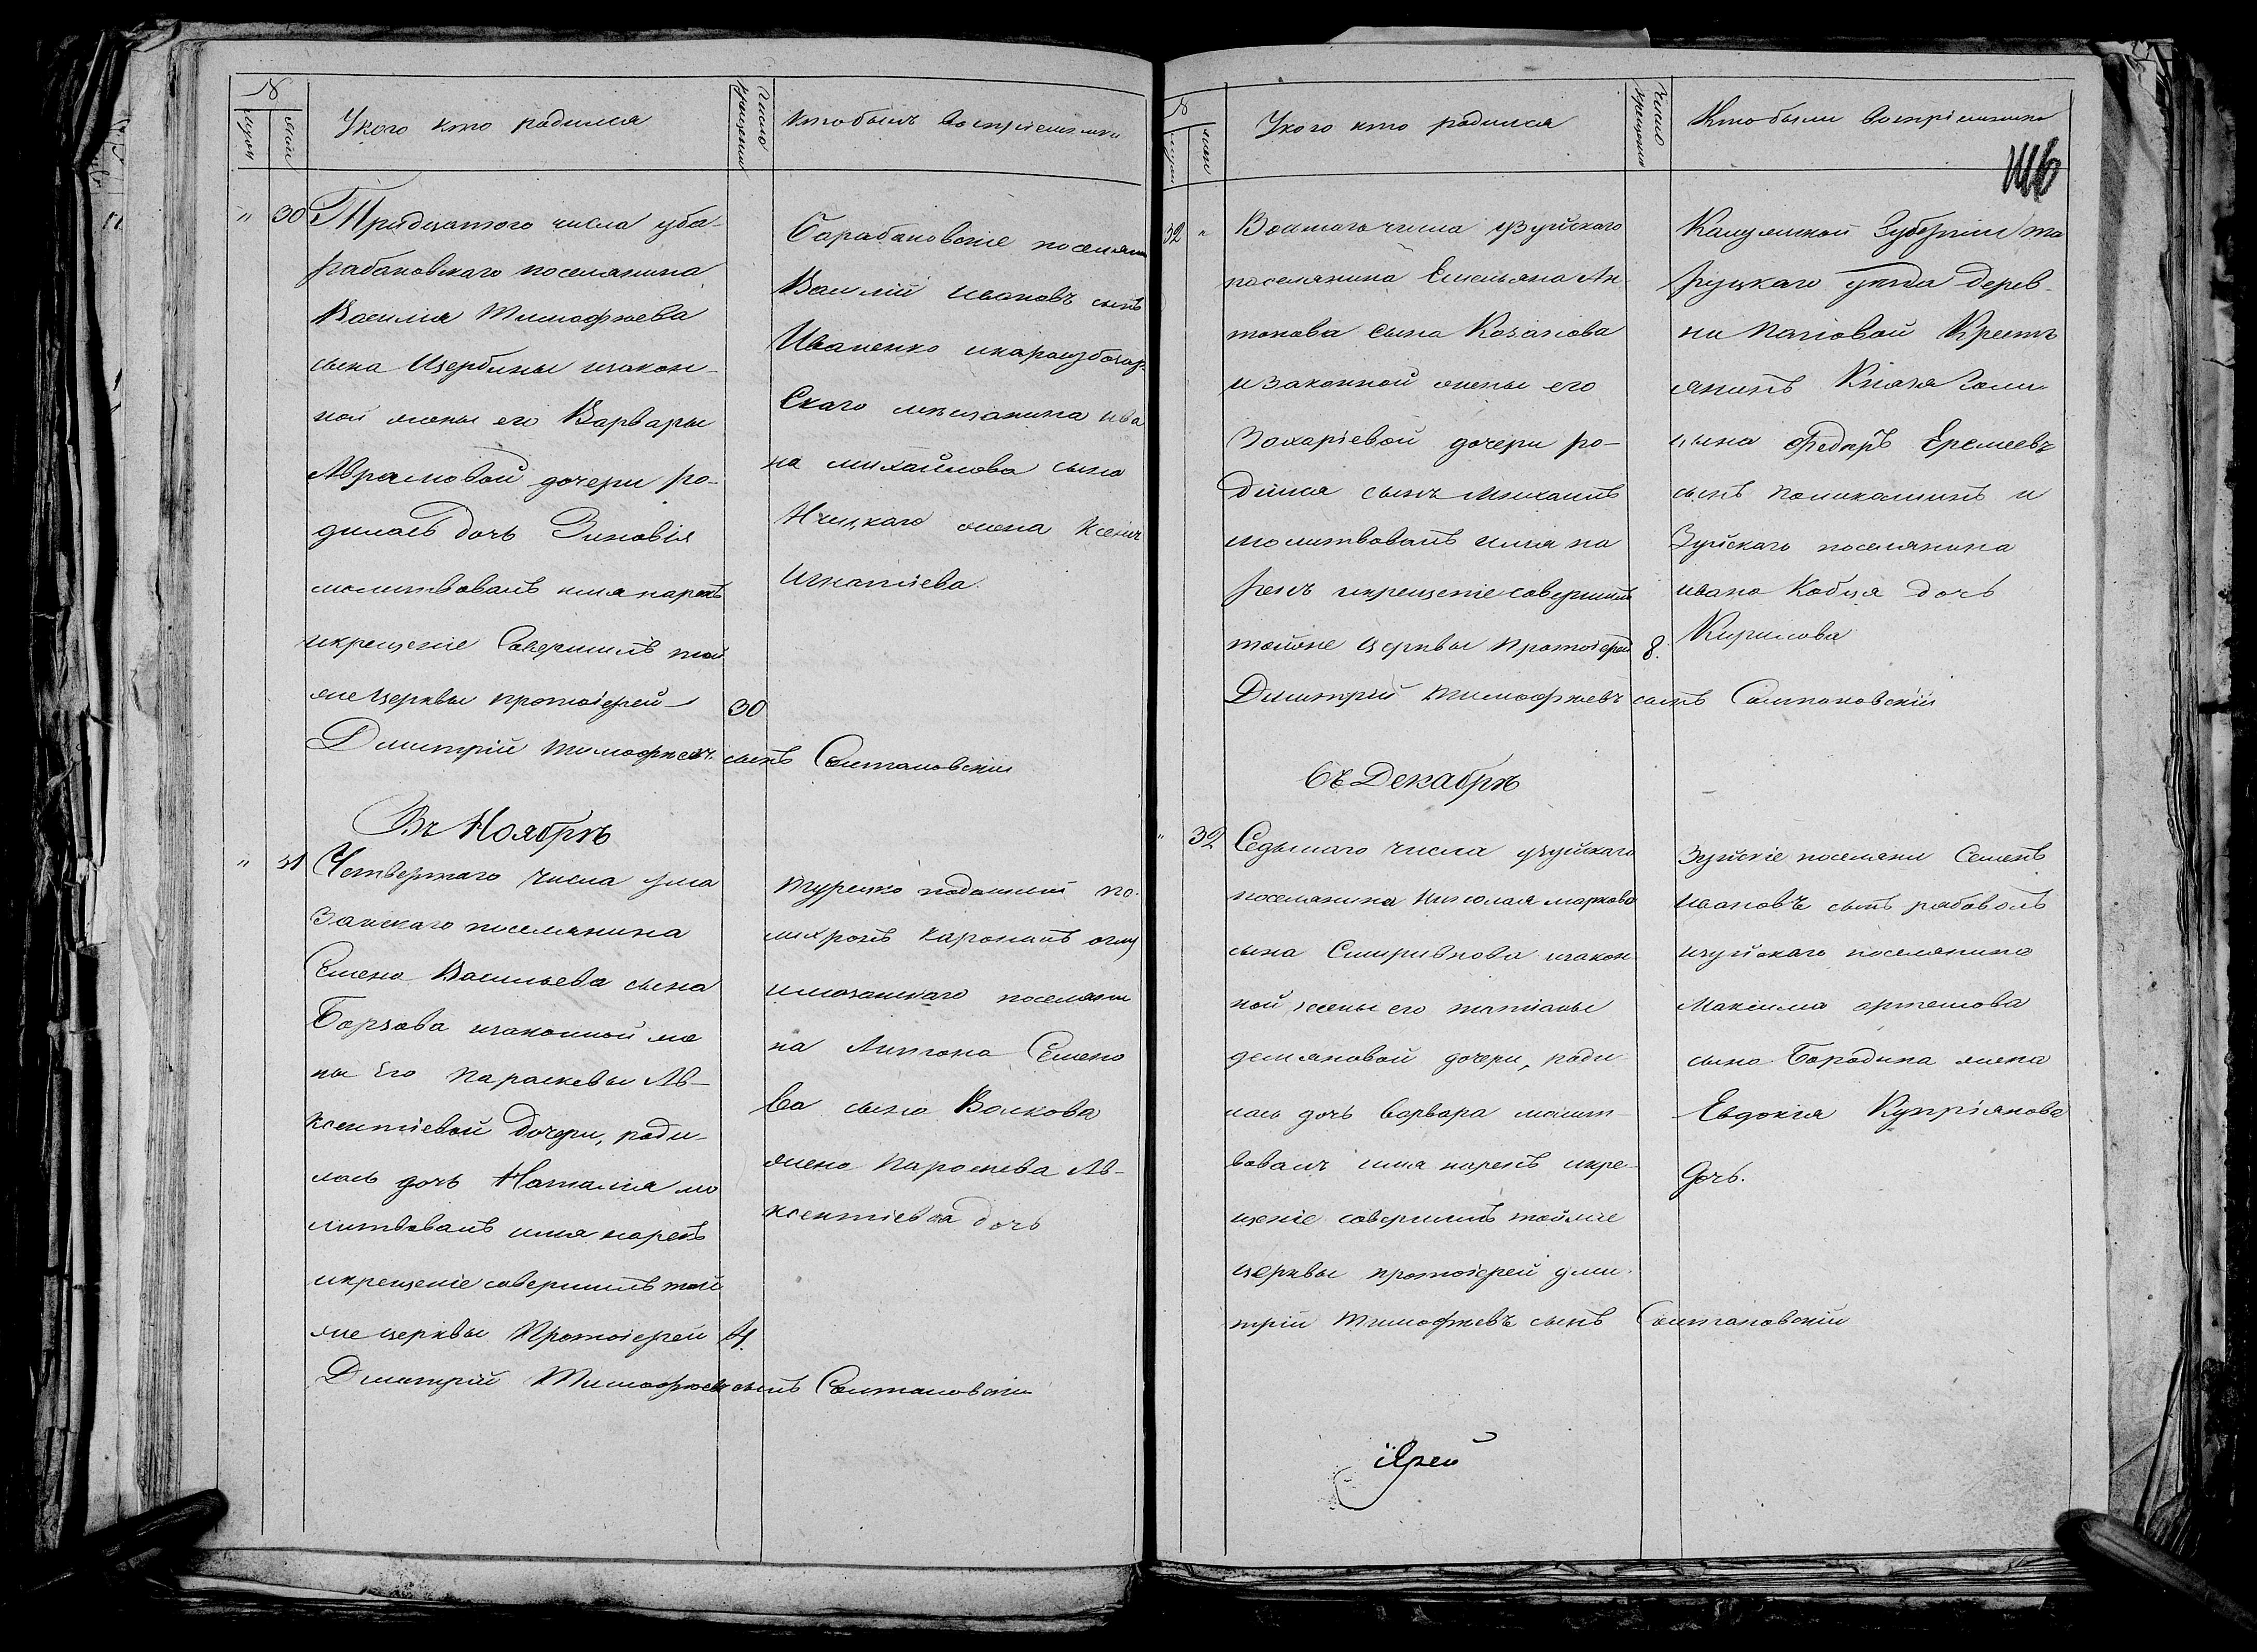 №
мужеск
женск
У кого кто родился
Число крещения
Кто былъ восприемники
" 30 Тридцатого числа у ба-
рабановскаго поселянина
Василия Тимофеева
сына Щербины изакон-
ной жены его Варвары
Аврамовой дочери ро-
дилась дочь Зиновія
молитвовалъ имя нарекъ
икрещеніе Совершилъ той
же Церквы протоіерей 30
Дмитрій Тимофеевъ сынъ Солтановскій
Барабановскіе поселяни
Василій Ивановъ сынъ
Иваненко икарасубозар-
Скаго мещанина ива
на михайлова сына
жена Ксенія
Игнатіева
Въ Ноябрѣ
" 31 Четвертаго Числа ума
Занскаго поселянина
Семена Васильева сына
Борзова изаконной же
ны Его Параскевы Ав-
ксентіевой дочери, роди-
лась дочь Наталия мо
литвовалъ имя нарекъ
икрещеніе совершилъ той
же церквы Протоіерей 4
Дмитрій Тимофеевъ сынъ Солтановскій
Турецко подданный по
оглу
имазанскаго поселяни
на Антона Семено
ва сына Волкова
жена Параскева Ав-
ксентіевна дочь
№
У кого кто родился
Число крещения
Кто были восприемники
32 " Восмого числа узуйскаго
поселянина Емельяна Ан
тонова сына Козакова
изаконной жены его
Захаріевой дочери ро-
дился сынъ Михаилъ
молитвовалъ имя на
рекъ икрещеніе совершилъ
тойже церквы Протоіерей 8.
Дмитрій Тимофеевъ сынъ Солтановскій
Калужской Губерніи та
руцкаго уезда дерев-
ни Крест
янинъ Князя Голи
цына Федоръ Еремеевъ
сынъ и
Зуйскаго поселянина
ивана Кобця дочь
Кирилова
Съ Декабрѣ
" 32 Седьмаго числа узуйскаго
поселянина Николая маркова
сына изакон
ной жены его татіаны
демяновой дочери, роди
лась дочь варвара молит-
вовалъ имя нарекъ икре-
щеніе совершилъ тойже
церквы протоіерей дми
трій Тимофеевъ сынъ Солтановскій
Зуйскіе поселяни Семенъ
Ивановъ сынъ рябоволъ
изуйскаго поселянина
Максима артемова
сына Бородина жена
Евдокия Купріянова
дочь.
іерей